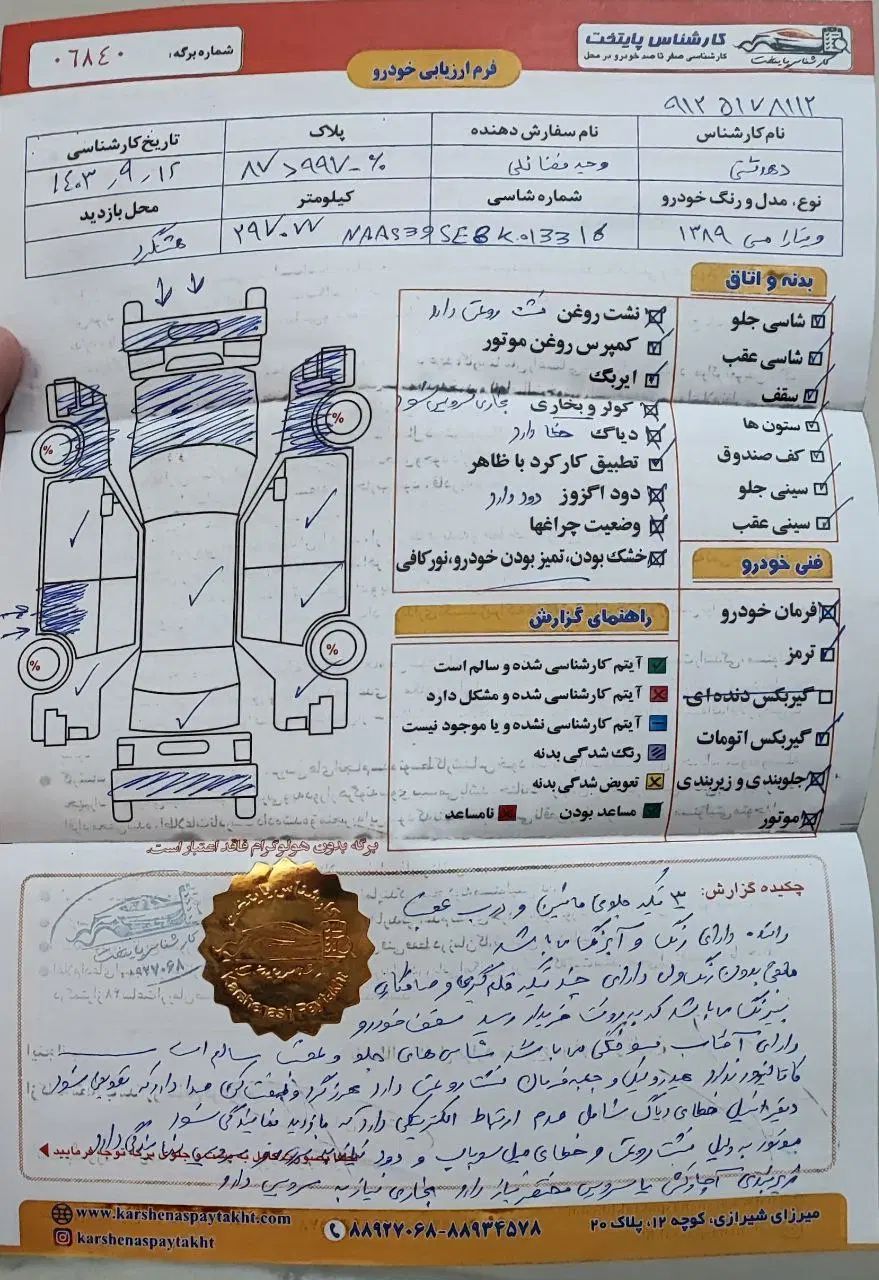 کارشناس پایتخت
کارشناسی صفر تا صد خودرو در محل
کارشناس پایتخت
شماره برگه: ۰۶۸۴۰
فرم ارزیابی خودرو
۹۱۲ ۵۱۷۸۱۱۲
نام کارشناس
نام سفارش دهنده
پلاک
تاریخ کارشناسی
دهدشتی
وحید
۱۴۰۳٫۹٫۱۲
نوع، مدل و رنگ خودرو
شماره شاسی
کیلومتر
محل بازدید
ویتارا ۱۳۸۹
۲۹۷۰۷۷
هشتگرد
بدنه و اتاق
شاسی جلو
شاسی عقب
سقف
ستون ها
کف صندوق
سینی جلو
سینی عقب
فنی خودرو
فرمان خودرو
ترمز
گیربکس دنده ای
گیربکس اتومات
جلوبندی و زیربندی
موتور
نشت روغن نشت روغن دارد
کمپرس روغن موتور
ایربگ
کولر و بخاری بخاری سرویس شود
دیاگ خطا دارد
تطبیق کارکرد با ظاهر
دود اگزوز دود دارد
وضعیت چراغها
خشک بودن، تمیز بودن خودرو، نور کافی
%
%
%
%
راهنمای گزارش
آیتم کارشناسی شده و سالم است
آیتم کارشناسی شده و مشکل دارد
آیتم کارشناسی نشده و یا موجود نیست
رنگ شدگی بدنه
تعویض شدگی بدنه
مساعد بودن نامساعد
برگه بدون هولوگرام فاقد اعتبار است.
چکیده گزارش: ۳ تیکه جلوی ماشین و درب عقب
راننده دارای رنگ و می باشد
بدون رنگ ولی دارای چند تیکه قلم گیری و صافکاری
بیرنگ می باشد که به رویت خریدار رسید سقف خودرو
دارای آفتاب سوختگی می باشد شاسی های جلو و عقب سالم است
ندارد هیدرولیک و جعبه فرمان نشت روغن دارد صدا دارد که تعویض شود
دیفرانسیل خطای دیاگ شامل عدم ارتباط الکتریکی دارد که بازدید نمایندگی شود
موتور به دلیل نشت روغن و خطای میل سوپاپ و دود
سرویس مختصر نیاز دارد بخاری نیاز به سرویس دارد
کارشناس پایتخت
Karshenas Paytakht
www.karshenaspaytakht.com
karshenaspaytakht
۸۸۹۲۷۰۶۸-۸۸۹۳۴۵۷۸
میرزای شیرازی، کوچه ۱۲، پلاک ۲۰